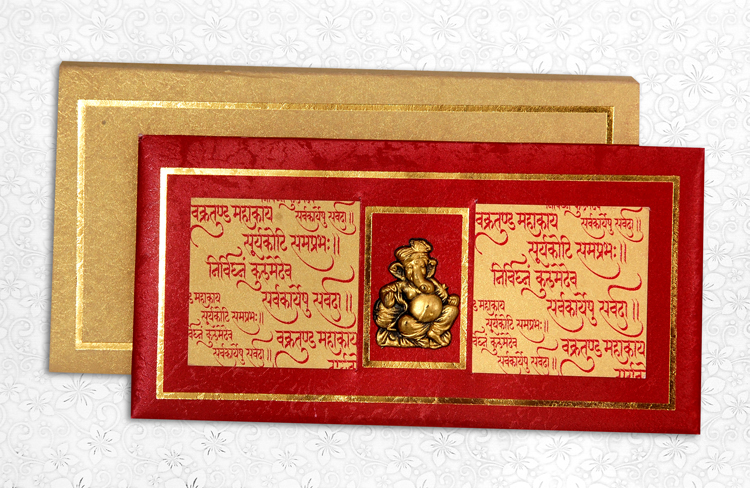 वक्रतुण्ड महाकाय सर्वकार्येषु सर्वदा॥
सूर्यकोटि समप्रभः॥
निर्विघ्नं कुरुमेदेव
सर्वकार्येषु सर्वदा॥
महाकाय
सूर्यकोटि समप्रभः॥
कुरुमेदेव वक्रतुण्ड महाकाय
सर्वकार्येषु सर्वदा॥
वक्रतुण्ड महाकाय सर्वकार्येषु सर्वदा॥
सूर्यकोटि समप्रभः॥
निर्विघ्नं कुरुमेदेव
सर्वकार्येषु सर्वदा॥
महाकाय
सूर्यकोटि समप्रभः॥
कुरुमेदेव वक्रतुण्ड महाकाय
सर्वकार्येषु सर्वदा॥